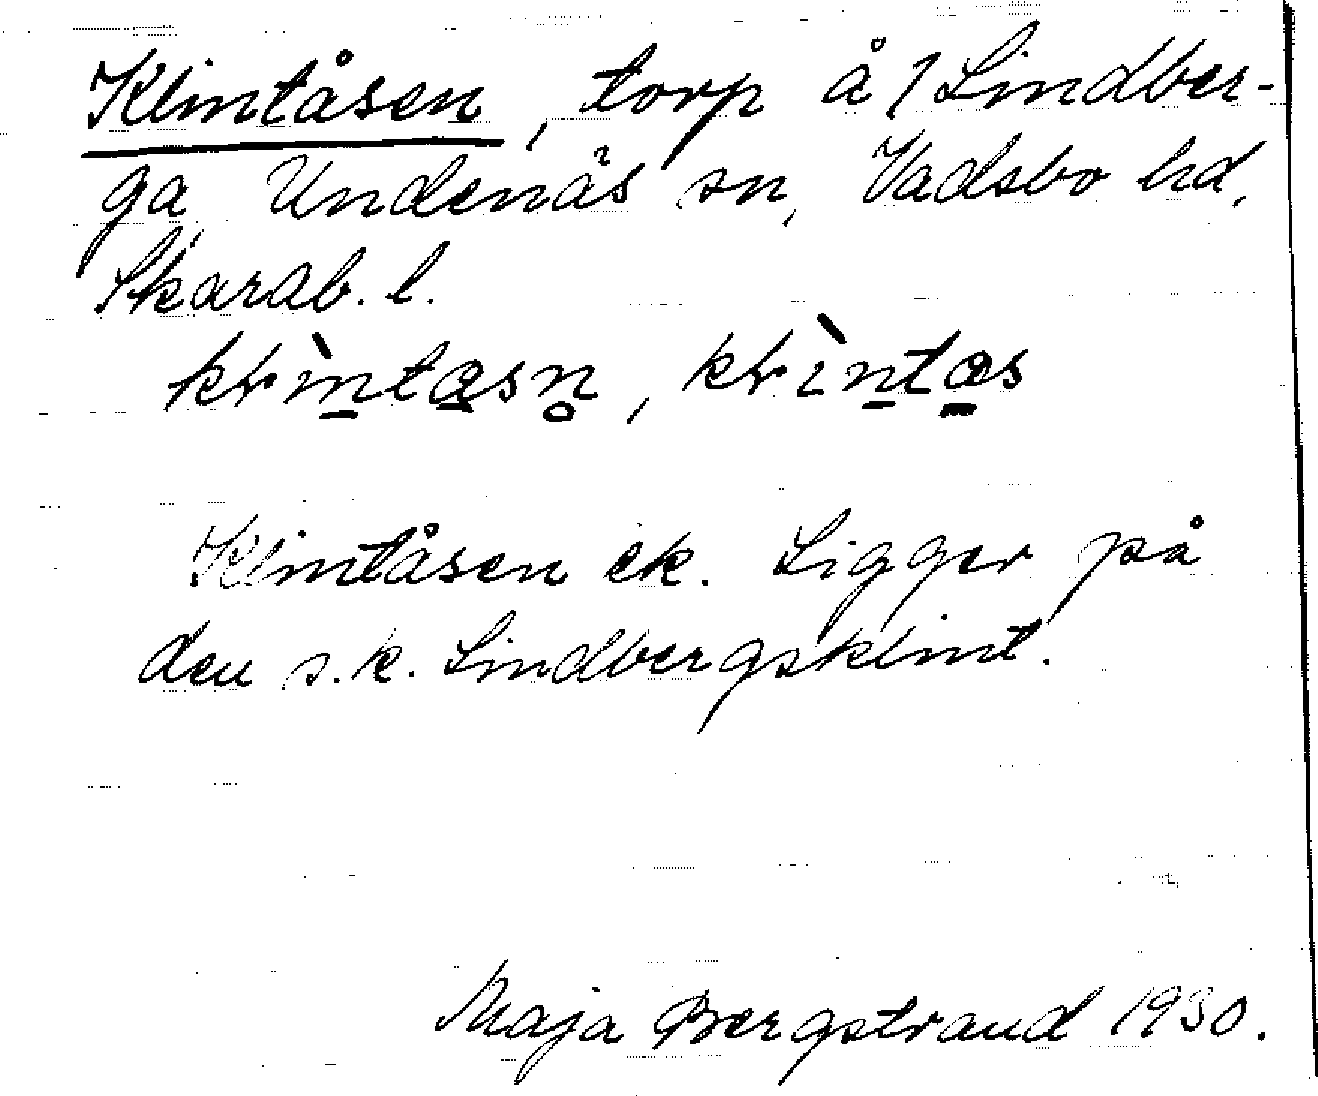 Klintåsen, torp å 1 Lindber-
ga, Undenäs sn, Vadsbo hd,
Skarab. l.
Klintåsen ek. Ligger på
den s.k. Lindbergsklint.
Maja Bergstrand 1930.